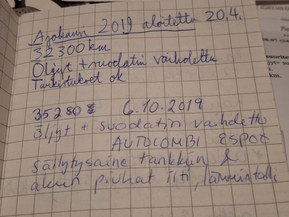 Ajokausi 2019 aloitettu 20.4.
32300 km
Öljyt + suodatin vaihdettu
Tarkistukset ok
35280 6.10.2019
Öljyt + suodatin vaihdettu
AUTOLOMBI ESPOO
säilytysaine tankkiin &
akun piuhat irti, lämmin talli